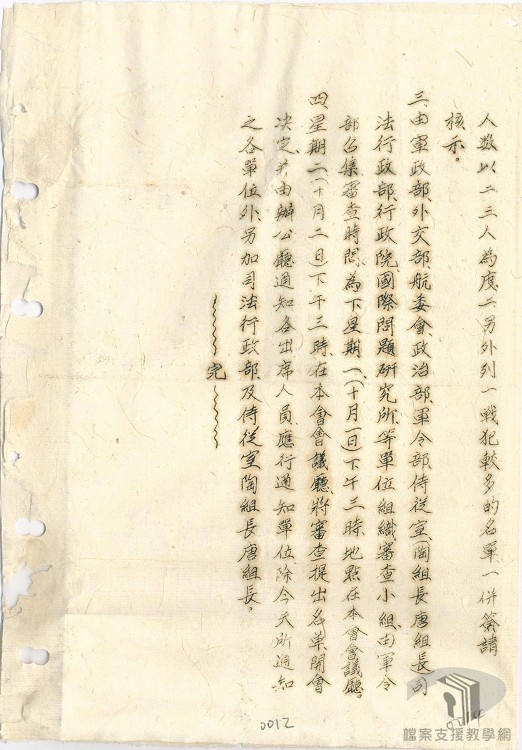 人数以二三人為度二另外列一戰犯較多的名單一併簽請
核示。
三、由軍政部外交部航委會政治部軍令部侍從室(陶組長唐組長司
法行政部行政院國際問題研究所等單位組織審查小組由軍令
部召集審查時間為下星期一(十月一日)下午三時地點在本會會議廳
四、星期二(十月二日)下午三時在本會會議廳將審查提出名單開會
决定并由辦公廳通知各出席人員應行通知單位除今天所通知
之各單位外另加司法行政部及侍從室陶組長唐組長。
完
0012
檔案支援教學網